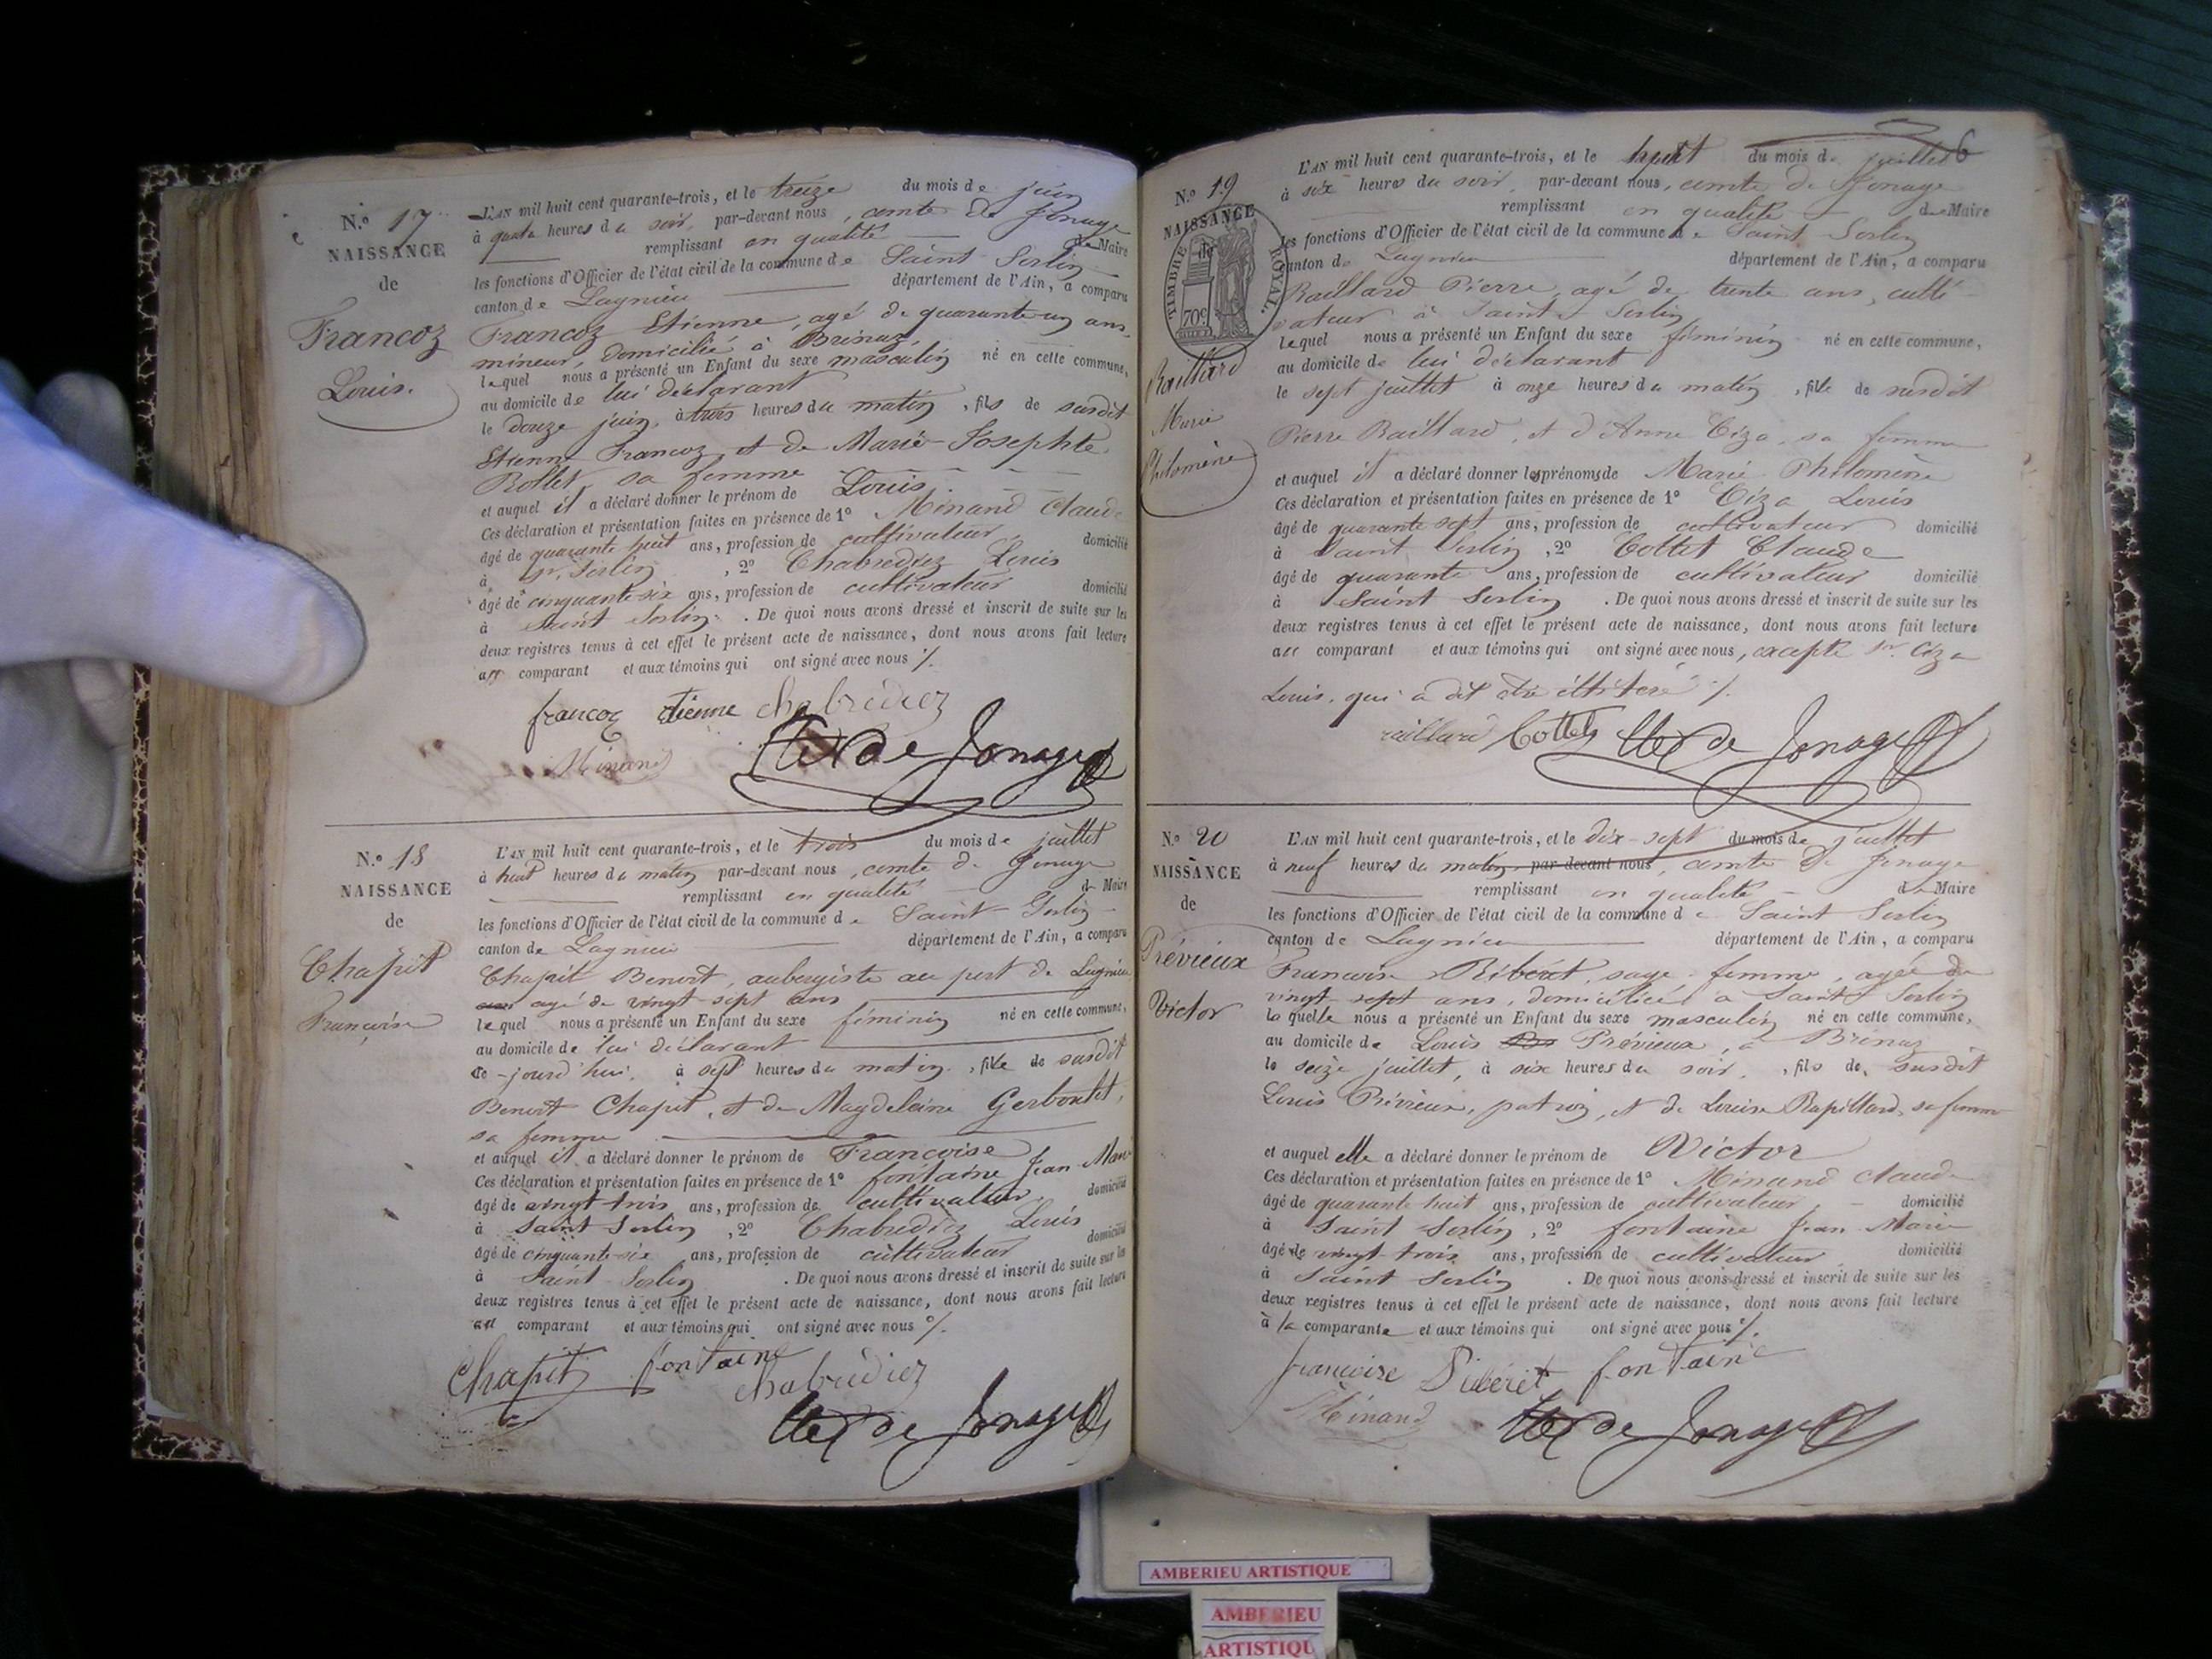 N.º 17
NAISSANCE
de
Francoz
Louis.
L'AN mil huit cent quarante-trois, et le treize du mois de juin
à quatre heures du soir, par-devant nous, comte de Jonage
remplissant en qualité de Maire
les fonctions d'Officier de l'état civil de la commune de Saint Sorlin
canton de Lagnieu département de l'Ain, a comparu
Francoz Etienne, agé de quarante-un ans,
mineur, domicilié à Brénaz,
lequel nous a présenté un Enfant du sexe masculin né en cette commune,
au domicile de lui déclarant
le douze juin, à trois heures du matin, fils de susdit
Etienne Francoz, et de Marie-Josephte
Rollet, sa femme
et auquel il a déclaré donner le prénom de Louis
Ces déclaration et présentation faites en présence de 1º Minand Claude
âgé de quarante huit ans, profession de cultivateur domicilié
à St. Sorlin, 2º Chabrediez Louis
âgé de cinquante-six ans, profession de cultivateur domicilié
à Saint Sorlin. De quoi nous avons dressé et inscrit de suite sur les
deux registres tenus à cet effet le présent acte de naissance, dont nous avons fait lecture
au comparant et aux témoins qui ont signé avec nous ./.
francoz etienne chabrediez
Minand de Jonage
N.º 18
NAISSANCE
de
Chapit
Françoise
L'AN mil huit cent quarante-trois, et le trois du mois de juillet
à huit heures du matin par-devant nous, comte de Jonage
remplissant en qualité de Maire
les fonctions d'Officier de l'état civil de la commune de Saint-Sorlin
canton de Lagnieu département de l'Ain, a comparu
Chapit Benoit, aubergiste au port de Lagnieu
agé de vingt-sept ans
lequel nous a présenté un Enfant du sexe féminin né en cette commune,
au domicile de lui déclarant
ce-jourd'hui, à sept heures du matin, fille de susdit
Benoit Chapit, et de Magdelaine Gerboulet,
sa femme
et auquel il a déclaré donner le prénom de Françoise
Ces déclaration et présentation faites en présence de 1º fontaine Jean-Marie
âgé de vingt-trois ans, profession de cultivateur, domicilié
à Saint Sorlin, 2º Chabrediez Louis
âgé de cinquante-six ans, profession de cultivateur domicilié
à Saint-Sorlin. De quoi nous avons dressé et inscrit de suite sur les
deux registres tenus à cet effet le présent acte de naissance, dont nous avons fait lecture
au comparant et aux témoins qui ont signé avec nous ./.
Chapit fontaine
chabrediez
de Jonage
6
N.º 19
NAISSANCE
de
TIMBRE ROYAL
70c
Raillard
Marie
Philomène
L'AN mil huit cent quarante-trois, et le huit du mois de juillet
à six heures du soir, par-devant nous, comte de Jonage
remplissant en qualité de Maire
les fonctions d'Officier de l'état civil de la commune de Saint-Sorlin
canton de Lagnieu département de l'Ain, a comparu
Raillard Pierre, agé de trente ans, culti-
vateur à Saint Sorlin
lequel nous a présenté un Enfant du sexe féminin né en cette commune,
au domicile de lui déclarant
le sept juillet à onze heures du matin, fille de susdit
Pierre Raillard, et d'Anne Ciza, sa femme
et auquel il a déclaré donner les prénoms de Marie Philomène
Ces déclaration et présentation faites en présence de 1º Ciza Louis
âgé de quarante sept ans, profession de cultivateur domicilié
à Saint Sorlin, 2º Cottet Claude
âgé de quarante ans, profession de cultivateur domicilié
à Saint Sorlin. De quoi nous avons dressé et inscrit de suite sur les
deux registres tenus à cet effet le présent acte de naissance, dont nous avons fait lecture
au comparant et aux témoins qui ont signé avec nous, excepté Sr. Ciza
Louis, qui a dit être illiteré ./.
raillard Cottet de Jonage
N.º 20
NAISSANCE
de
Prévieux
Victor
L'AN mil huit cent quarante-trois, et le dix-sept du mois de juillet
à neuf heures du matin, par-devant nous, comte de Jonage
remplissant en qualité de Maire
les fonctions d'Officier de l'état civil de la commune de Saint Sorlin
canton de Lagnieu département de l'Ain, a comparu
Françoise Ribéret, sage-femme, agée de
vingt-sept ans, domiciliée à Saint Sorlin
laquelle nous a présenté un Enfant du sexe masculin né en cette commune,
au domicile de Louis Prévieux, à Brénaz
le seize juillet, à six heures du soir, fils de susdit
Louis Prévieux, patron, et de Louise Rapillard, sa femme
et auquel elle a déclaré donner le prénom de Victor
Ces déclaration et présentation faites en présence de 1º Minand Claude
âgé de quarante huit ans, profession de cultivateur, domicilié
à Saint Sorlin, 2º fontaine Jean Marie
âgé de vingt-trois ans, profession de cultivateur domicilié
à Saint Sorlin. De quoi nous avons dressé et inscrit de suite sur les
deux registres tenus à cet effet le présent acte de naissance, dont nous avons fait lecture
à la comparante et aux témoins qui ont signé avec nous ./.
françoise Ribéret fontaine
Minand de Jonage
AMBERIEU ARTISTIQUE
AMBERIEU
ARTISTIQU